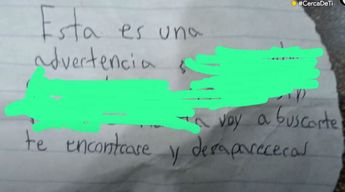 #CercaDeTi
Esta es una
advertencia
voy a buscarte
te encontrase y desapareceras